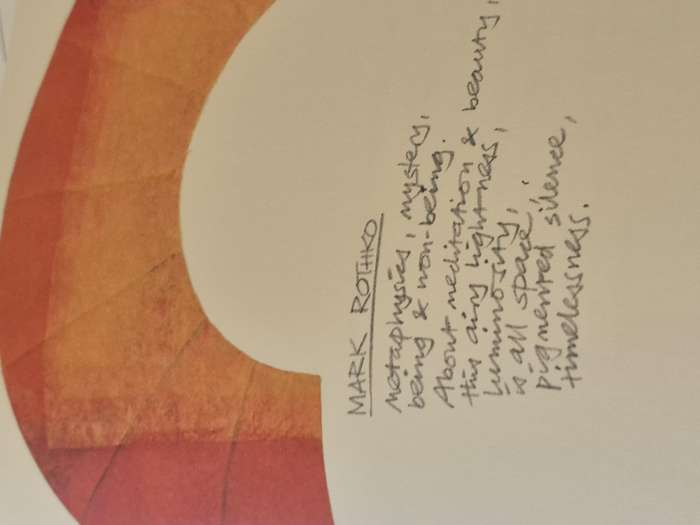 MARK ROTHKO
metaphysics, mystery,
being & non-being.
About meditation & beauty,
this airy lightness,
luminosity,
is all space,
pigmented silence,
timelessness.